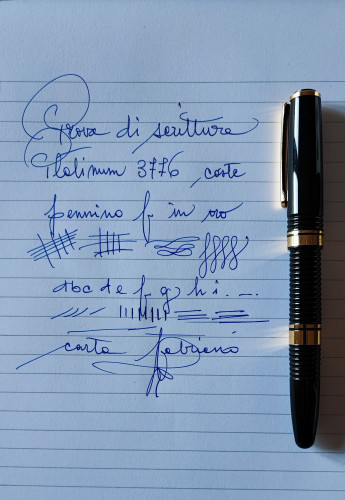 Prova di scrittura
Platinum 3776, corte
pennino f in oro
abc de f g h i . _ _
carta fabriano